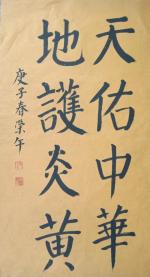 天佑中華
地護炎黃
庚子春榮午